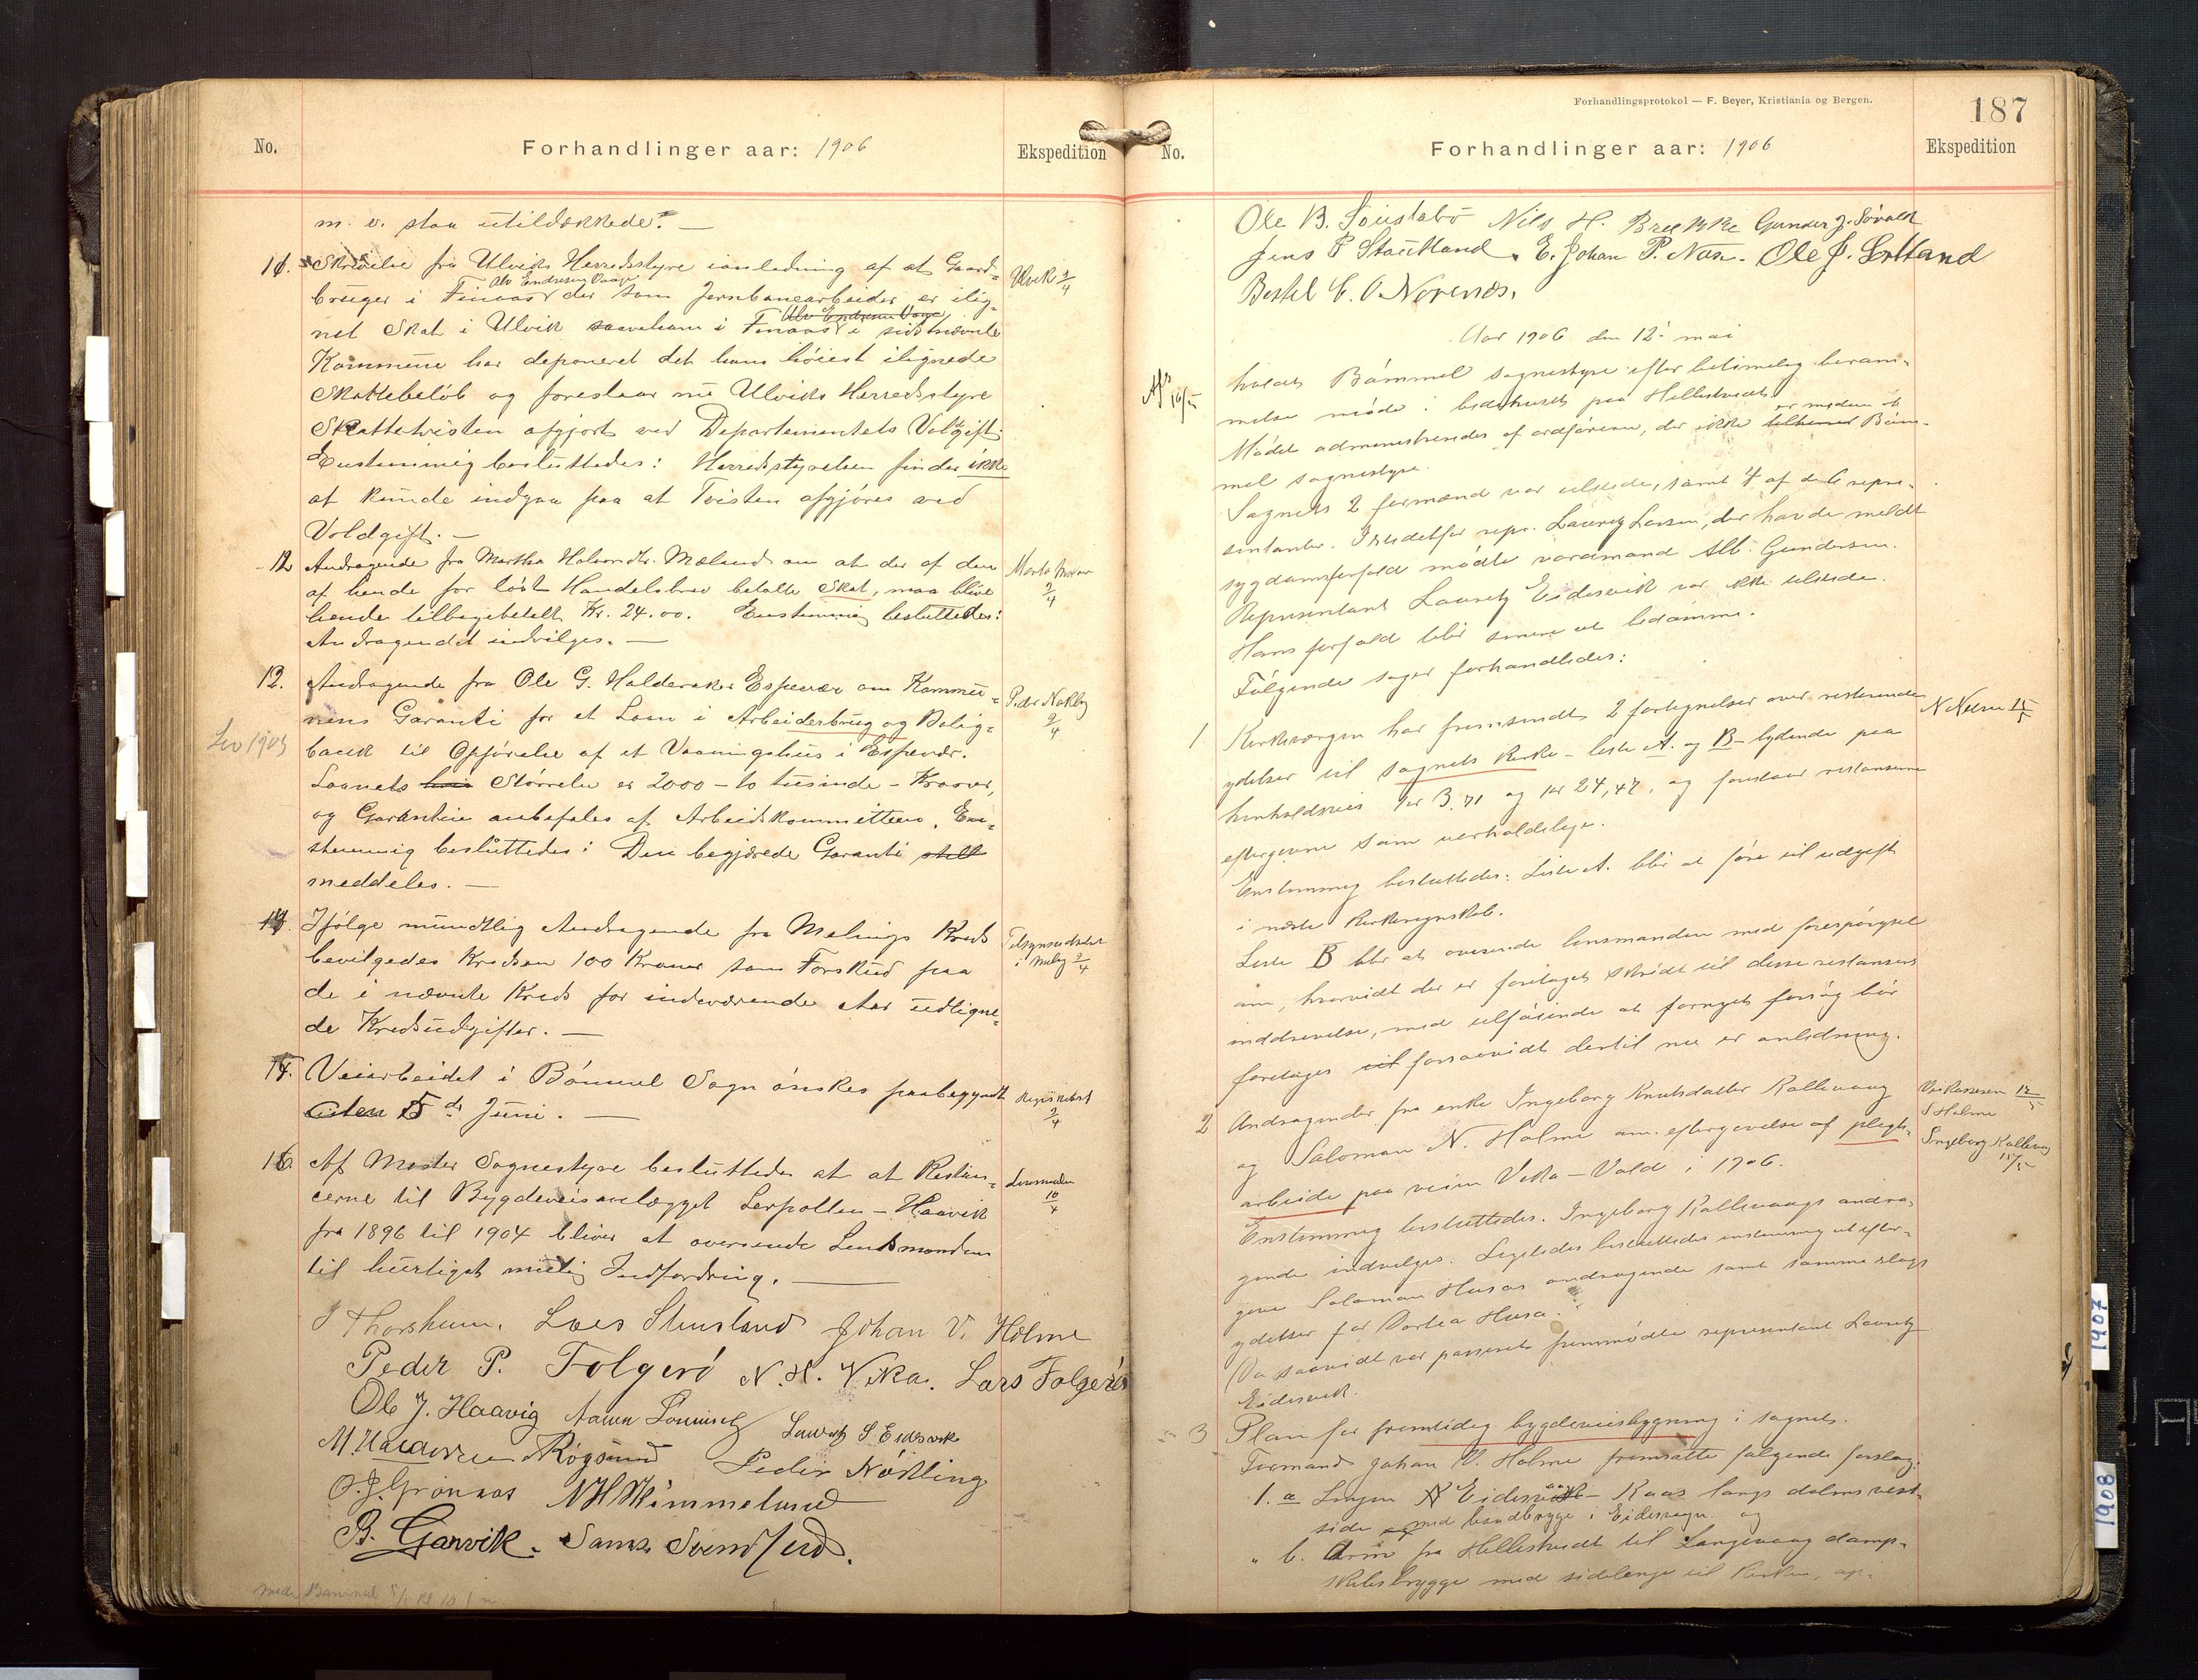 No.
Forhandlinger aar: 1906
Ekspedition
m. v. staa utildækkede". —
11. Skrivelse fra Ulviks Herredsstyre ianledning af at Gaard-
Ulvik 9/4
bruger i Finaas der som Jernbanearbeider er ilig-
net Skat i Ulvik saavelsom i Finaas i sidstnævnte
Kommune har deponeret det ham höiest ilignede
Skattebelöb og foreslaar nu Ulviks Herredsstyre
Skattetvisten afgjort ved Departementets Voldgift.
Enstemmig besluttedes: Herredsstyrelsen finder ikke
at kunde indgaa paa at Tvisten afgjöres ved
Voldgift. —
12. Andragende fra Martha Halvordtr. Mæland om at der af den
9/4
af hende for löst Handelsbrev betalte Skat, maa blive
hende tilbagebetalt Kr. 24.00. Enstemmig besluttedes:
Andragendet indvilges. —
12. Andragende fra Ole G. Halderaker Espevær om Kommu-
Peder Nökling 9/4
nens Garanti for et Laan i Arbeiderbrug og Bolig-
bank til Opförelse af et Vaaningshus i Espevær.
Laanets Störrelse er 2000 – to tusinde – Kroner,
og Garantien anbefales af Arbeidskommitteen. En-
stemmig besluttedes: Den begjærede Garanti
meddeles. —
Ifölge mundtlig Andragende fra Melings Kreds
Tilsynsudvalet i Meling 9/4
bevilgedes Kredsen 100 Kroner som Forskud paa
de i nævnte Kreds for indeværende Aar udligne-
de Kredsudgifter. —
Veiarbeidet i Bömmel Sogn önskes paabegyndt
9/4
5de Juni. —
16. Af Moster Sognestyre besluttedes at Restan-
Lensmanden 10/4
cerne til Bygdeveisanlægget Serpollen – Haavik
fra 1896 til 1904 bliver at oversende Lensmanden
til hurtigst mulig Indfordring. —
J Thorsheim. Lars Stensland Johan V. Holme
Peder P. Folgerö N. H. Vika. Lars Folgerö
Ole J. Haavig Lauritz S Eidesvik
Rögsund Peder Nökling
O. J. Grönnaas N H Himmelund
B. Garvik.
187
Forhandlingsprotokol — F. Beyer, Kristiania og Bergen.
No.
Forhandlinger aar: 1906
Ekspedition
Ole B. Söustabö Nils H. Brekke Gunder J. Sörvald
Jens P Stautland. E. Johan P. Næs. Ole J. Sortland
Bertel C. O. Norenæs.
Aar 1906 den 12' mai
holdt Bömmel sognestyre efter betimelig beram-
melse möde i bedehuset paa Hellesundet
Mödet administreredes af ordföreren, der ikke er medlem af Böm-
mel sognestyre.
Sognets 2 formænd var tilstede, samt 4 af de 6 repræ-
sentanter. Istedetfor repr. Lauritz Larsen, der havde meldt
sygdomsforfald mödte varamand Alb. Gundersen.
Representant Lauritz Eidesvik var ikke tilstede.
Hans forfald blir senere at bedömme.
Fölgende sager forhandledes:
1 Kirkevergen har fremsendt 2 fortegnelser over resterende
N Nilsen 15/5
ydelser til sognets kirke – liste A. og B – lydende paa
henholdsvis kr 3,71 og kr 24,47, og foreslaar restanserne
eftergivne som uerholdelige.
Enstemmig besluttedes: Liste A. blir at före til udgift
i næste kirkeregnskab.
Liste B blir at oversende lensmanden med forespörgsel
om, hvorvidt der er foretaget skridt til disse restansers
inddrivelse, med tilföiende at fornyet forsög bör
foretages forsaavidt dertil nu er anledning.
2 Andragender fra enke Ingeborg Knutsdatter Kallevaag
Veikassesen 12/5
S Holme
og Saloman N. Holme om eftergivelse af pligt-
Ingeborg Kallevaag 15/5
arbeide paa veien Vika – Vold i 1906.
Enstemmig besluttedes. Ingeborg Kallevaags andra-
gende indvilges. Ligeledes besluttedes enstemmig at efter-
give Saloman Husas andragende samt samme slags
ydelser for Dortea Husa.
(Da saavidt var passeret fremmödte representant Lauritz
Eidesvik.
3 Plan for fremtidig bygdeveisbygning i sognet.
Formand Johan V. Holme fremsatte fölgende forslag:
1. a Linjen Eidesvaag – Kaas langs dalens vest-
side med landbrygge i Eidesvaagen og
" b. Arm fra Hellesundet til Langevaag damp-
skibsbrygge med sidelinje til kirken, op-
1907
1908